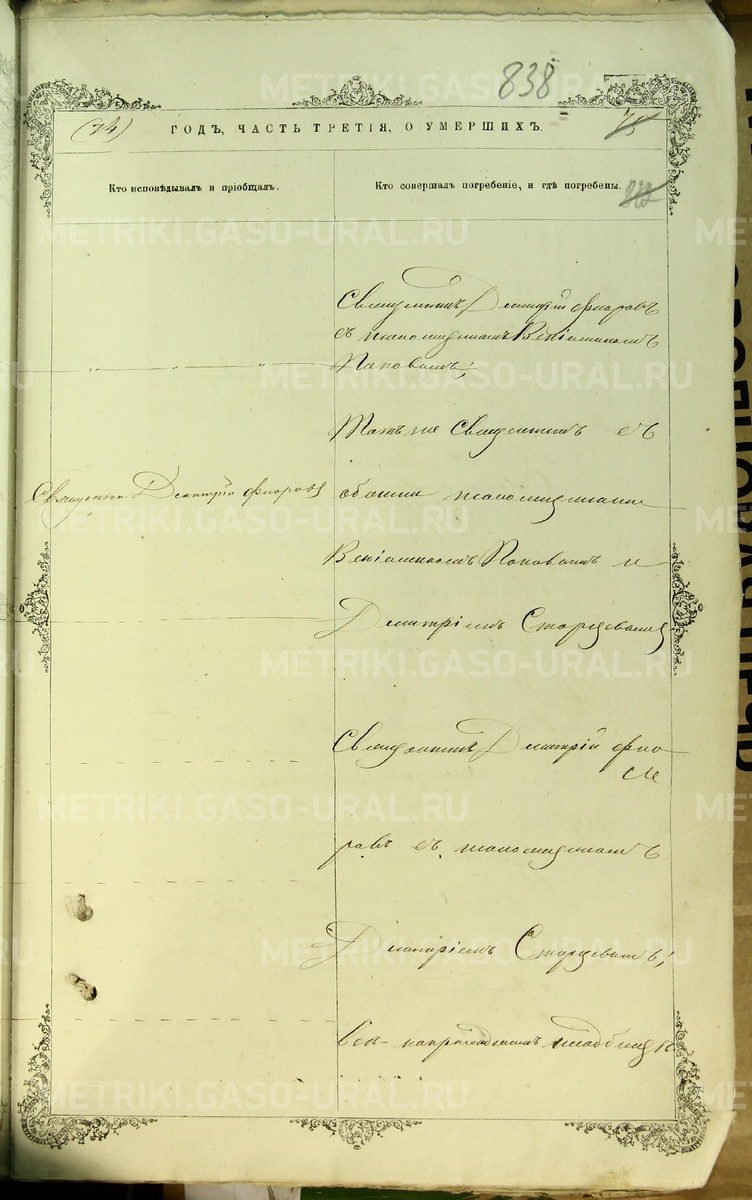 838
(74)
ГОДЪ, ЧАСТЬ ТРЕТІЯ, О УМЕРШИХЪ.
Кто исповѣдывалъ и пріобщалъ.
Кто совершалъ погребеніе, и гдѣ погребены.
METRIKI.GASO-URAL.RU
Священникъ Дмитрій Флоровъ
съ псаломщикомъ Веніаминомъ
Поповымъ;
Тотъ же Священникъ съ
Священникъ Дмитрій Флоровъ
обоими псаломщиками
Веніаминомъ Поповымъ и
Дмитріемъ Старцевымъ
Священникъ Дмитрій Фло
ровъ съ псаломщикомъ
Дмитріемъ Старцевымъ;
на приходскомъ кладбищѣ.